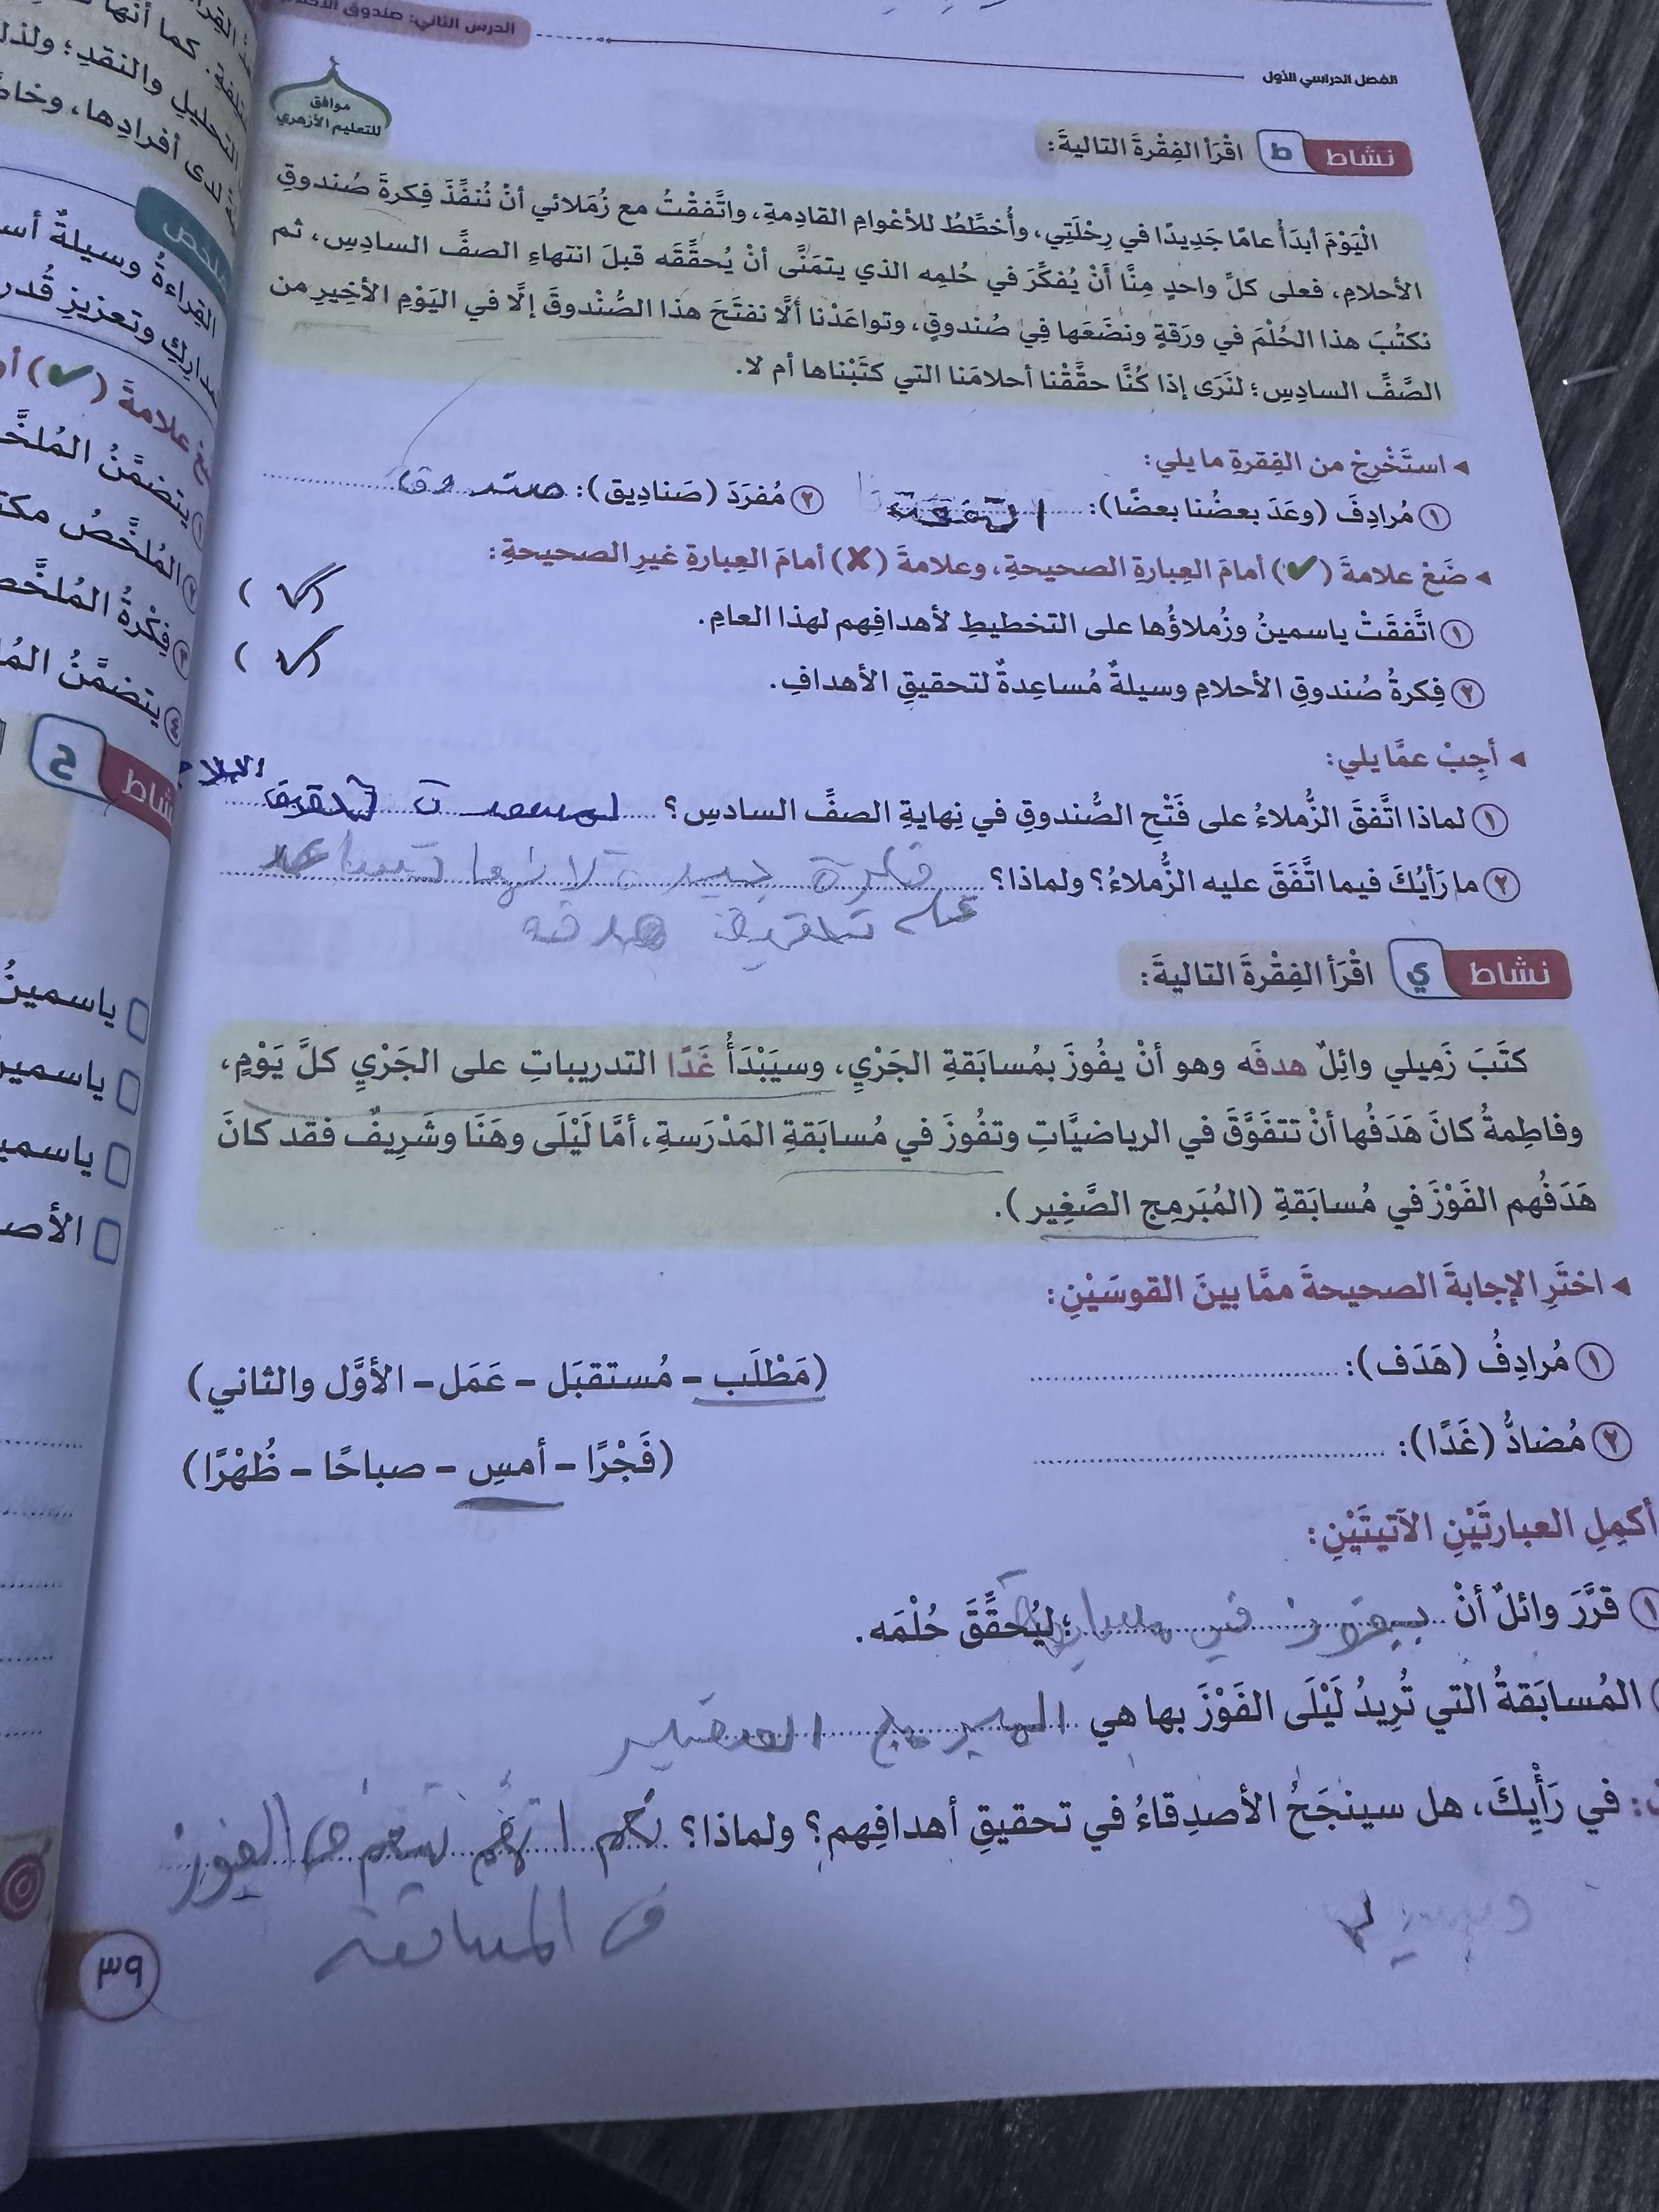 الدرس الثاني: صندوق
الفصل الدراسي الأول
موافق
للتعليم الأزهري
نشاط ط اقْرَأ الفِقْرةَ التاليةَ:
الْيَوْمَ أبدَأُ عامًا جَدِيدًا في رِحْلَتِي، وأُخطِّطُ للأعْوامِ القادِمةِ، واتَّفقْتُ مع زُمَلائي أنْ نُنفِّذَ فِكرةَ صُندوقِ
الأحلامِ، فعلى كلِّ واحدٍ مِنَّا أَنْ يُفكِّرَ في حُلمِه الذي يتمَنَّى أنْ يُحقِّقَه قبلَ انتهاءِ الصفِّ السادِسِ، ثم
نكتُبَ هذا الحُلْمَ في ورَقةٍ ونضَعَها فِي صُندوقٍ، وتواعَدْنا ألَّا نفتَحَ هذا الصُّنْدوقَ إلَّا في اليَوْمِ الأخِيرِ من
الصَّفِّ السادِسِ؛ لنَرَى إذا كُنَّا حقَّقْنا أحلامَنا التي كتَبْناها أم لا.
◂ استَخْرِجْ من الفِقرةِ ما يلي:
١ مُرادِفَ (وعَدَ بعضُنا بعضًا): ٢ مُفرَدَ (صَنادِيق): صندوق
◂ ضَعْ علامةَ (✔) أمامَ العِبارةِ الصحيحةِ، وعلامةَ (✘) أمامَ العِبارةِ غيرِ الصحيحةِ:
١ اتَّفقَتْ ياسمينُ وزُملاؤُها على التخطيطِ لأهدافِهم لهذا العامِ. (✓)
٢ فِكرةُ صُندوقِ الأحلامِ وسيلةٌ مُساعِدةٌ لتحقيقِ الأهدافِ. (✓)
◂ أجِبْ عمَّا يلي:
١ لماذا اتَّفقَ الزُّملاءُ على فَتْحِ الصُّندوقِ في نِهايةِ الصفِّ السادسِ؟
٢ ما رَأيُكَ فيما اتَّفَقَ عليه الزُّملاءُ؟ ولماذا؟ فكرة جيدة لانها تساعد
على تحقيق هدفه
نشاط ي اقْرَأ الفِقْرةَ التاليةَ:
كتَبَ زَمِيلي وائِلٌ هدفَه وهو أنْ يفُوزَ بمُسابَقةِ الجَرْيِ، وسيَبْدَأُ غَدًا التدريباتِ على الجَرْيِ كلَّ يَوْمٍ،
وفاطِمةُ كانَ هَدَفُها أنْ تتفَوَّقَ في الرياضيَّاتِ وتفُوزَ في مُسابَقةِ المَدْرَسةِ، أمَّا لَيْلَى وهَنَا وشَرِيفٌ فقد كانَ
هَدَفُهم الفَوْزَ في مُسابَقةِ (المُبَرمِج الصَّغِير).
◂ اختَرِ الإجابةَ الصحيحةَ ممَّا بينَ القوسَيْنِ:
١ مُرادِفُ (هَدَف): (مَطْلَب - مُستقبَل - عَمَل - الأوَّل والثاني)
٢ مُضادُّ (غَدًا): (فَجْرًا - أمسِ - صباحًا - ظُهْرًا)
أكمِلِ العبارتَيْنِ الآتيتَيْنِ:
١ قرَّرَ وائلٌ أنْ يفوز في ؛ ليُحقِّقَ حُلْمَه.
المُسابَقةُ التي تُرِيدُ لَيْلَى الفَوْزَ بها هي المبرمج الصغير
في رَأْيِكَ، هل سينجَحُ الأصدِقاءُ في تحقيقِ أهدافِهم؟ ولماذا؟ نعم الفوز
في المسابقة
٣٩
ملخص
القراءةُ وسيلةٌ
نشاط ح